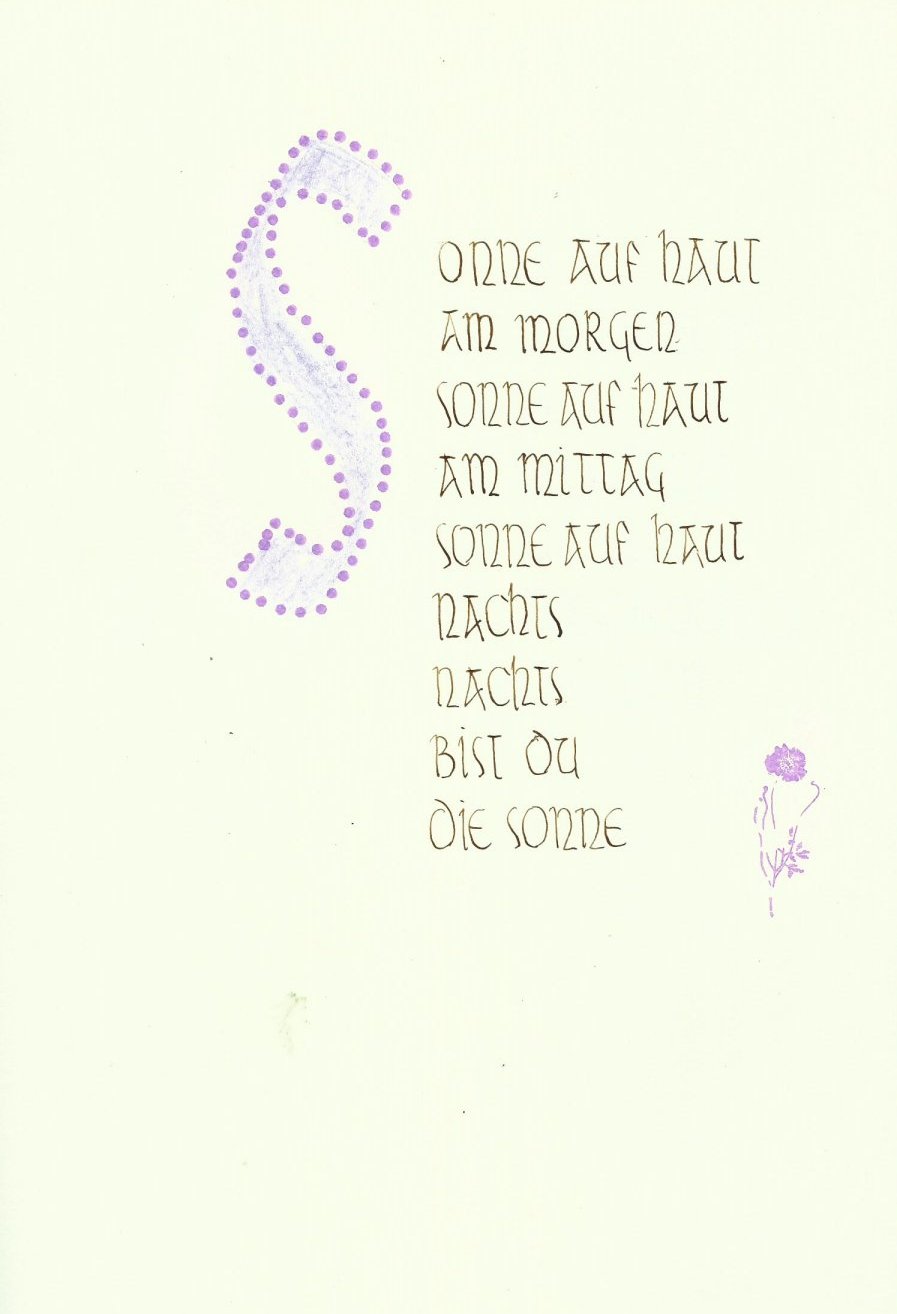 SONNE AUF HAUT
AM MORGEN
SONNE AUF HAUT
AM MITTAG
SONNE AUF HAUT
NACHTS
NACHTS
BIST DU
DIE SONNE